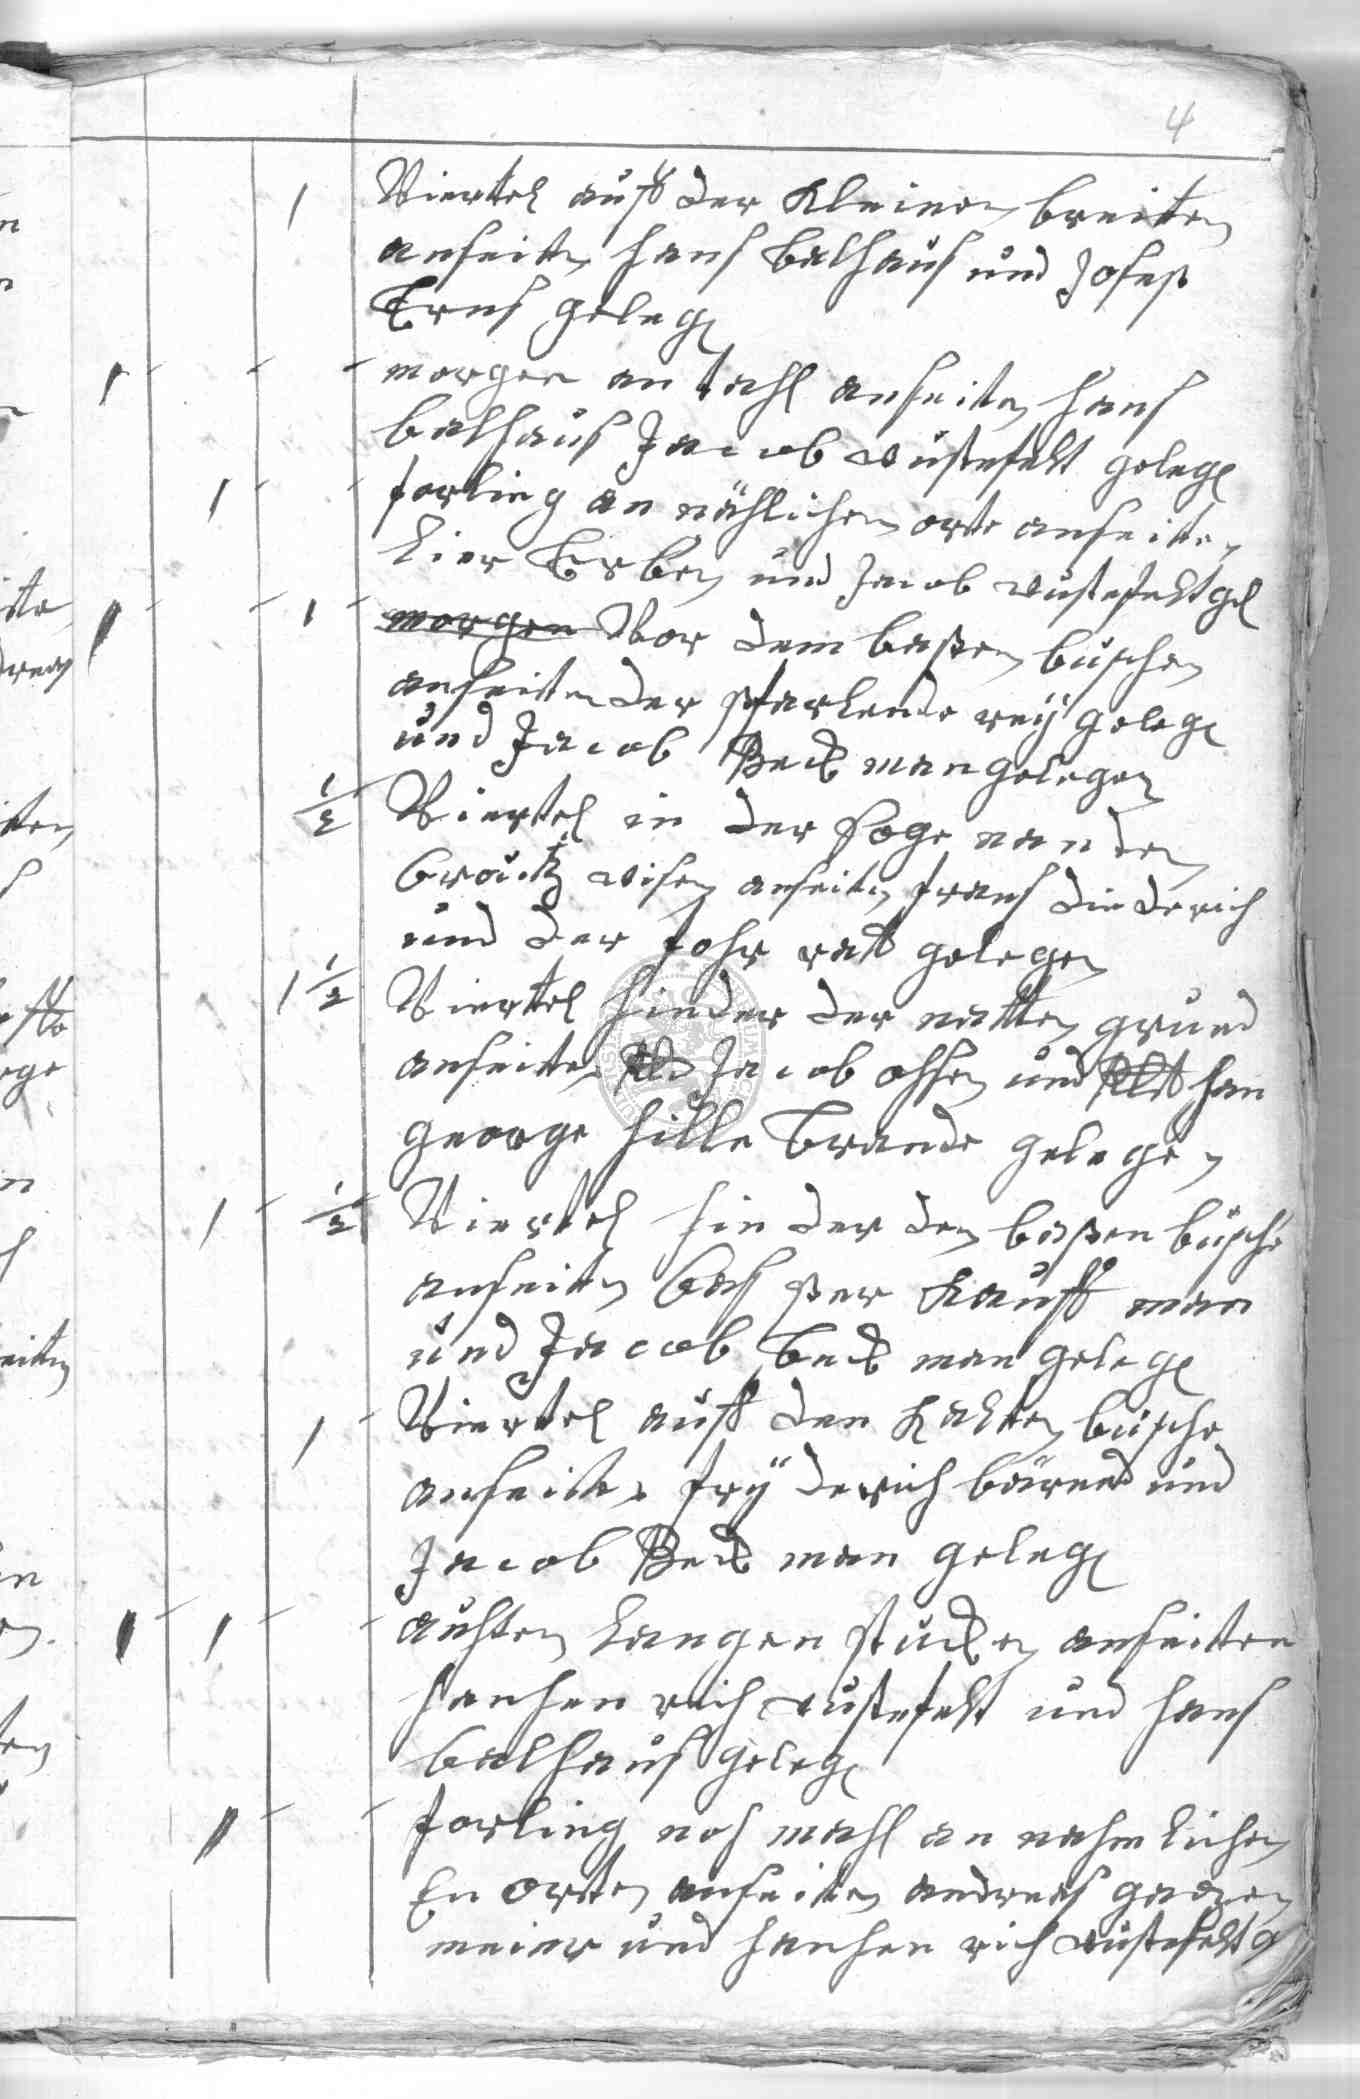 4
1 Viertel auff der Kleinen breiten
anseiten Hans Balhaus und Josep
Erns geleg
1 - - - morgen an tahl anseiten Hans
balhaus Jacob wüstefelt geleg
1 - - forling an nählichen orte anseitten
Lier Erben und Jacob wüstefelt gel
1 - - 1 - morgen Vor dem baßen büschen
anseiten der pfarlende rey geleg
und Jacob Beckman gelegen
1/2 Viertel in der soge nanden
wisen anseiten frans diederich
und der gelegen
1 1/2 Viertel hinder der natten grund
anseitten Jacob ohsen und han
george hille Brande gelegen
1 - 1/2 Viertel hin der den baßen büsche
anseiten Cas per Kauff man
und Jacob Beck man geleg
1 - Viertel auff den Kalten büsche
anseiten fry derich bärend und
Jacob Beck man geleg
1 - 1 - - auhten Langen stucken anseitten
Hanhen rich wüstefelt und Hans
balhaus geleg
1 - - forling noh mahl an nahm lichen
En orten anseiten andreas
meier und Hanhen rich wüstefelt g